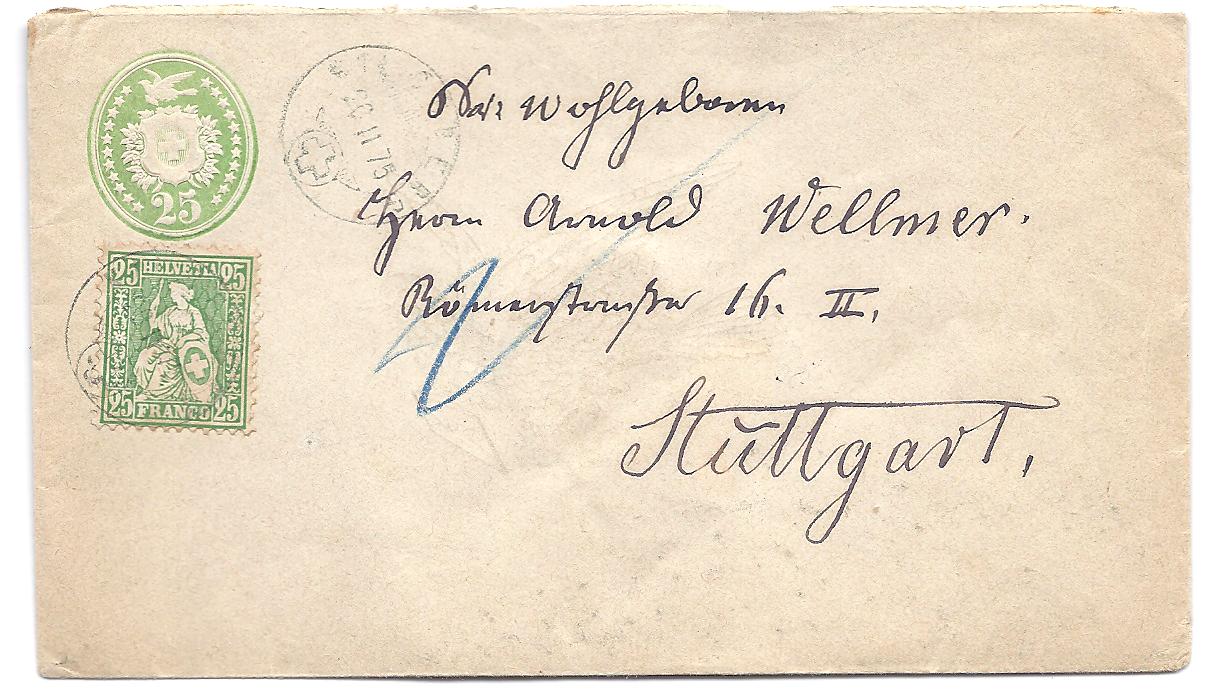 25
26 II 75
25 HELVETIA 25
25 FRANCO 25
Sr. Wohlgeboren
Herrn Arnold Wellmer.
Römerstrasse 16. II.
Stuttgart.